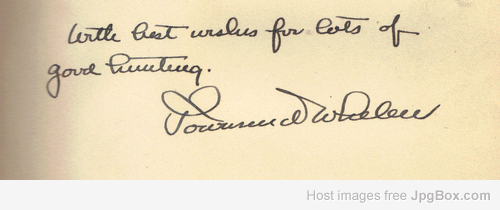 With best wishes for lots of
good hunting.
Townsend Whelen
Host images free JpgBox.com